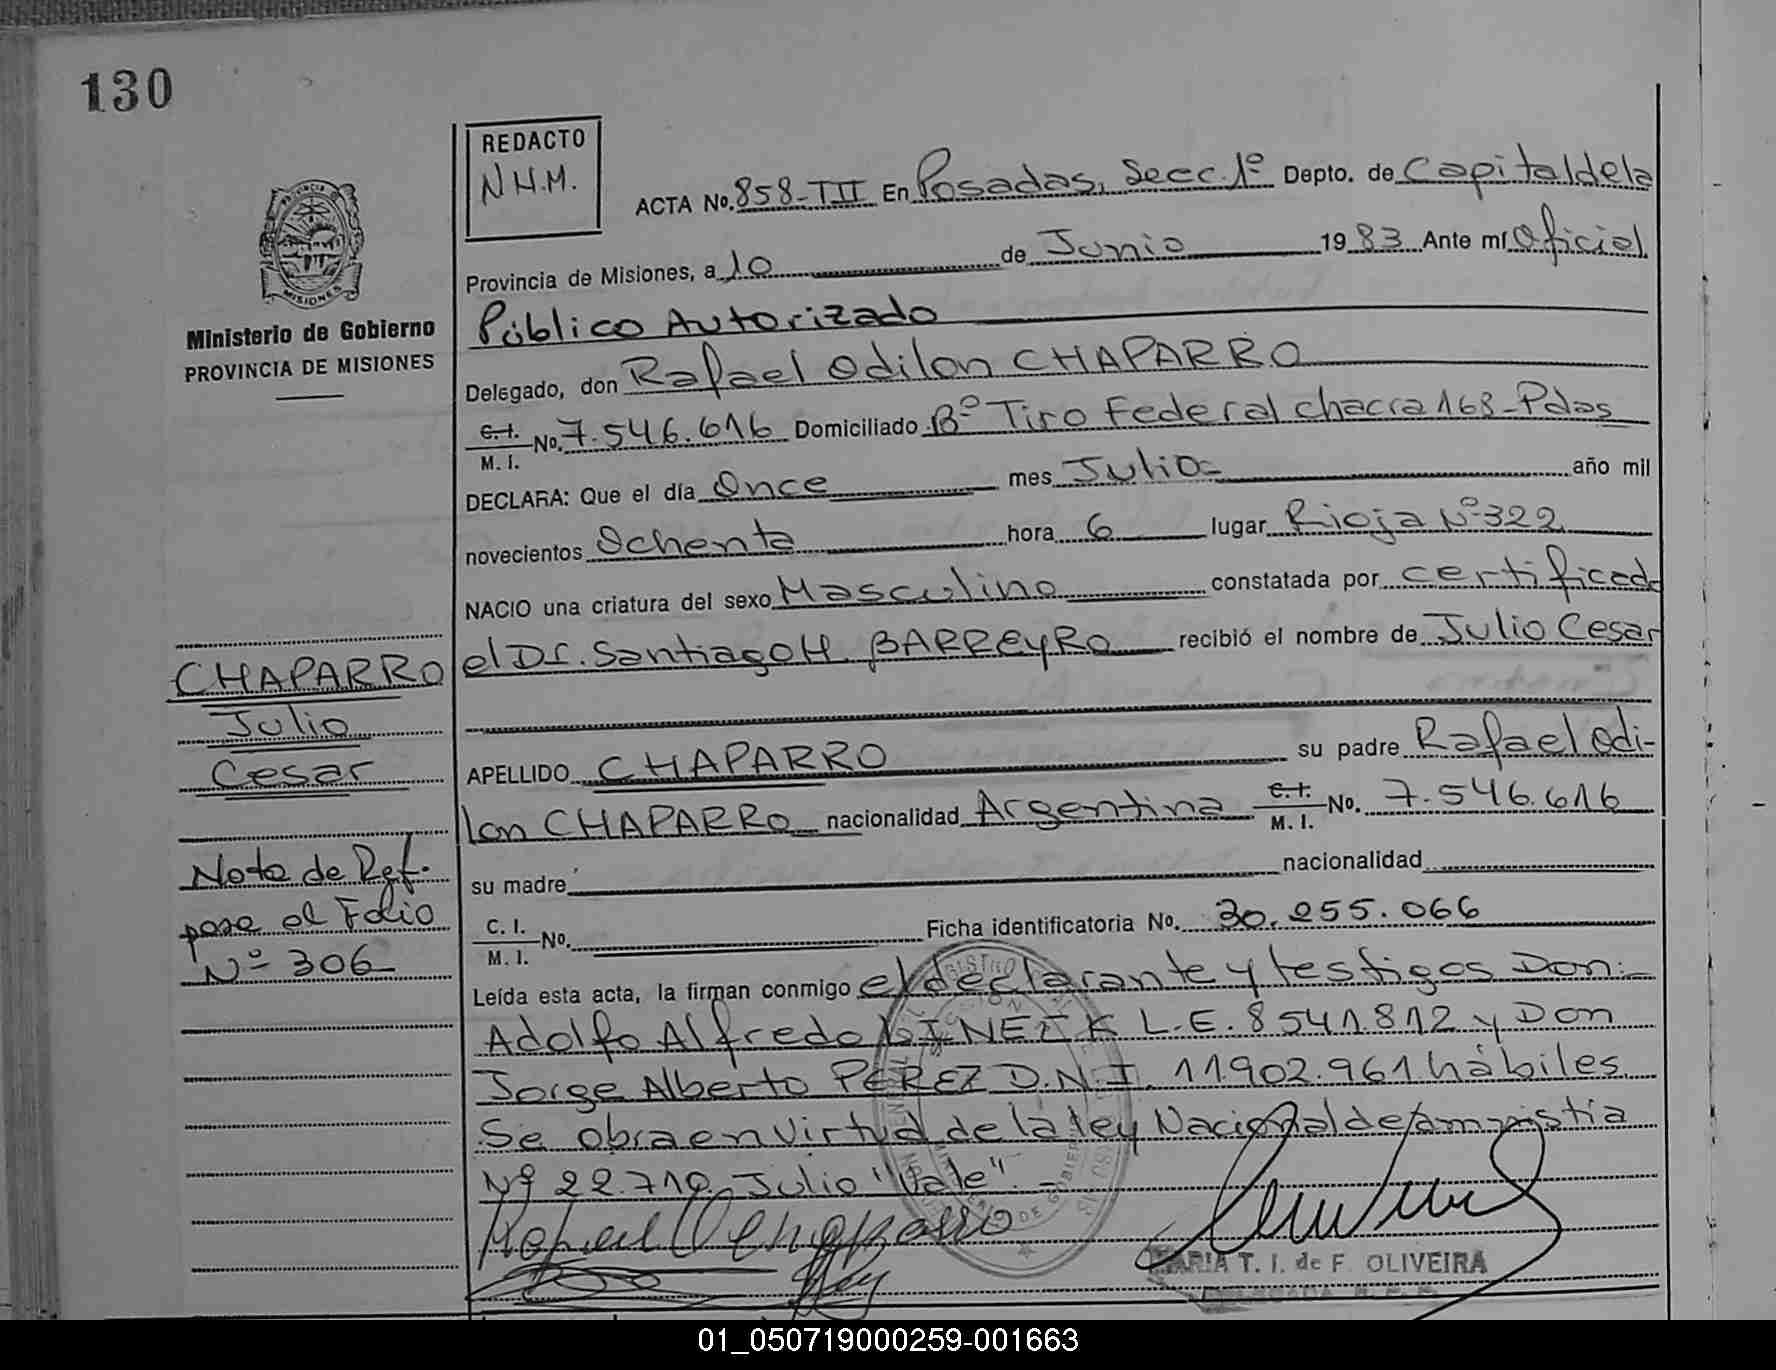 130
REDACTO
N.H.M.
ACTA No. 858-III En Posadas, Secc. 1º Depto. de Capital de la
Provincia de Misiones, a 10 de Junio 1983 Ante mí Oficial
Público Autorizado
Delegado, don Rafael Odilon CHAPARRO
C.I. M.I. No. 7.546.616 Domiciliado Bº Tiro Federal chacra 168-Pdas
DECLARA: Que el día Once mes Julio= año mil
novecientos Ochenta hora 6 lugar Rioja Nº 322
NACIO una criatura del sexo Masculino constatada por certificado
el Dr. Santiago H. BARREYRO recibió el nombre de Julio Cesar
APELLIDO CHAPARRO su padre Rafael Odi-
lon CHAPARRO nacionalidad Argentina C.I. M.I. No. 7.546.616
su madre nacionalidad
C. I. M. I. No. Ficha identificatoria No. 30.255.066
Leída esta acta, la firman conmigo el declarante y testigos Don:-
Adolfo Alfredo L.E. 8541.812 y Don
Jorge Alberto PEREZ D.N.I. 11902.961 hábiles.
Se obra en virtud de la ley Nacional de Amnistía
Nº 22.710. Julio "Vale".-
MARIA T. I. de F. OLIVEIRA
MISIONES
Ministerio de Gobierno
PROVINCIA DE MISIONES
CHAPARRO
Julio
Cesar
Nota de Ref.
pase al Folio
Nº 306
01_050719000259-001663